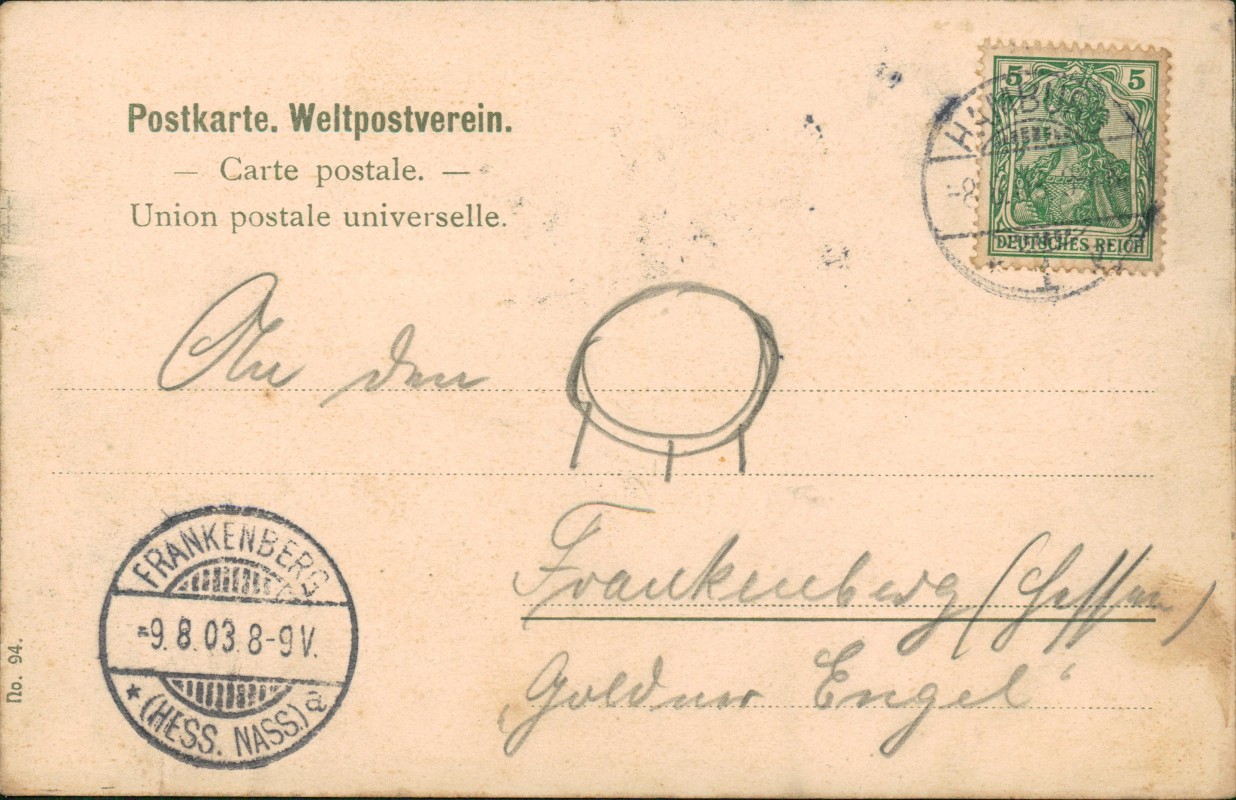 Postkarte. Weltpostverein.
— Carte postale. —
Union postale universelle.
5 5
DEUTSCHES REICH
HAMBURG
8
1
An den
Frankenberg (Hessen)
„Goldner Engel“
FRANKENBERG
*9.8.03.8-9V.
* (HESS. NASS.) a
No. 94.